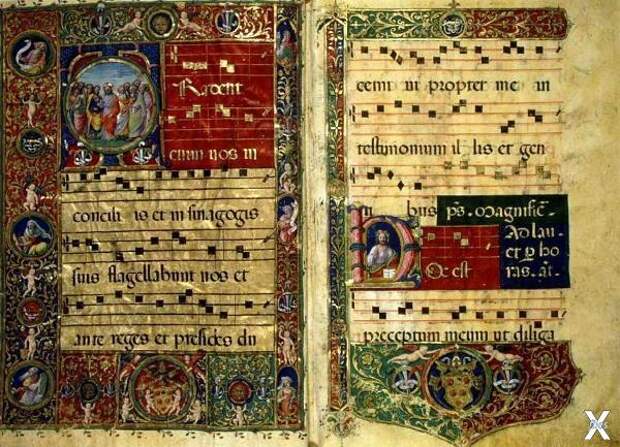 TRadent
enim nos in
concili is et in sinagogis
suis flagellabunt nos et
ante reges et presides du
cemi ni propter me in
testimonium il lis et gen
ti bus ps. Magnific̄.
Ad lau.
et ꝑ ho
ras. añ.
HOc est
preceptum meum ut diliga